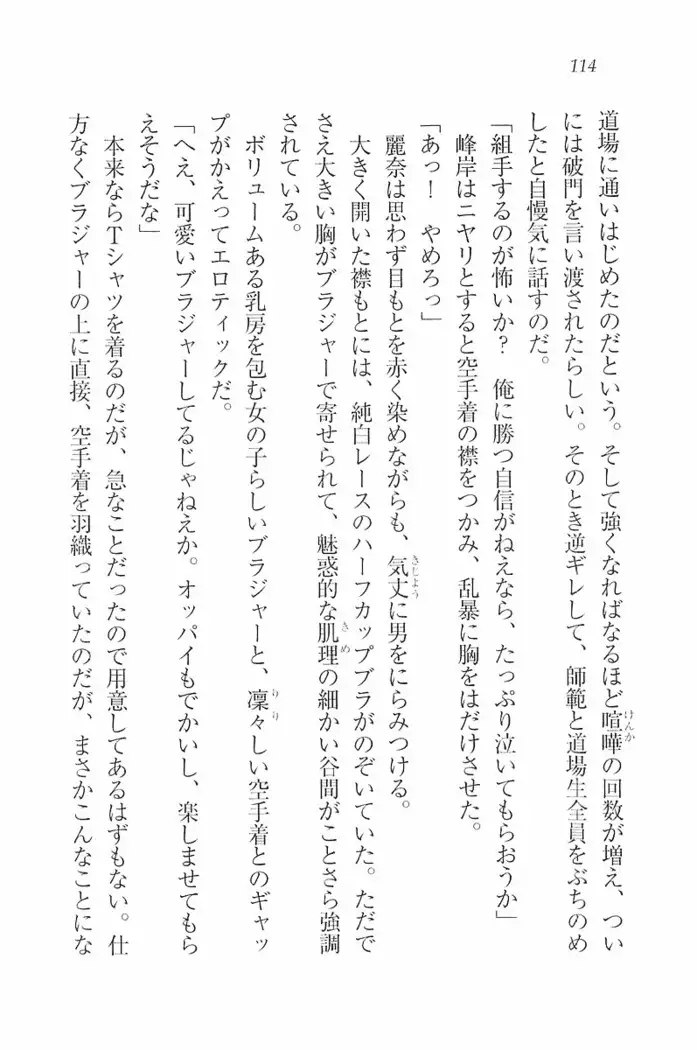 114
道場に通いはじめたのだという。そして強くなればなるほど喧嘩の回数が増え、つい
には破門を言い渡されたらしい。そのとき逆ギレして、師範と道場生全員をぶちのめ
したと自慢気に話すのだ。
「組手するのが怖いか? 俺に勝つ自信がねえなら、たっぷり泣いてもらおうか」
峰岸はニヤリとすると空手着の襟をつかみ、乱暴に胸をはだけさせた。
「あっ! やめろっ」
麗奈は思わず目もとを赤く染めながらも、気丈に男をにらみつける。
大きく開いた襟もとには、純白レースのハーフカップブラがのぞいていた。ただで
さえ大きい胸がブラジャーで寄せられて、魅惑的な肌理の細かい谷間がことさら強調
されている。
ボリュームある乳房を包む女の子らしいブラジャーと、凜々しい空手着とのギャッ
プがかえってエロティックだ。
「へえ、可愛いブラジャーしてるじゃねえか。オッパイもでかいし、楽しませてもら
えそうだな」
本来ならTシャツを着るのだが、急なことだったので用意してあるはずもない。仕
方なくブラジャーの上に直接、空手着を羽織っていたのだが、まさかこんなことにな